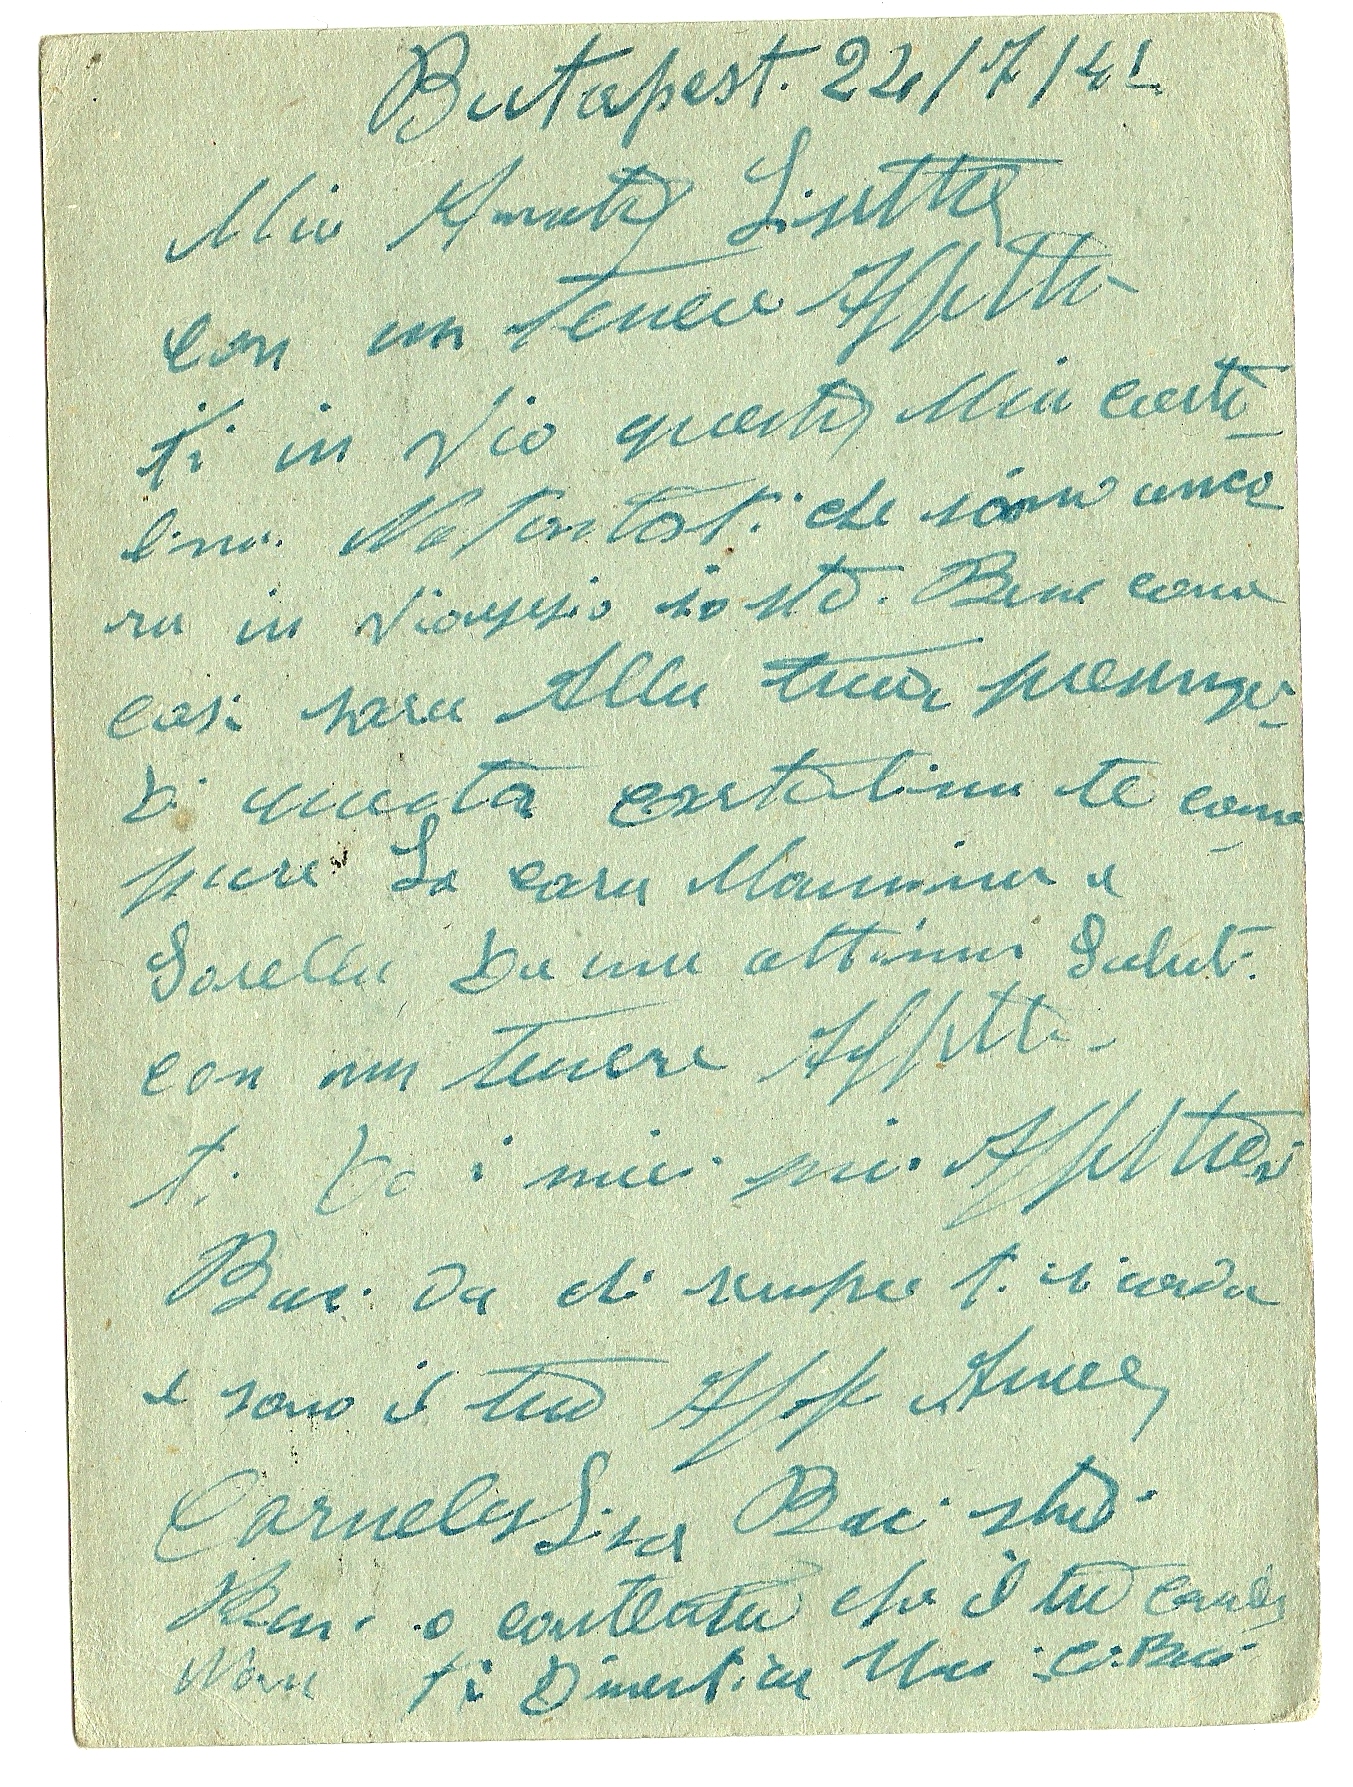 Butapest. 22/7/41
Mia Amata Lisetta
con un tenere Affetto
ti in vio questa Mia carto
lina. Notantoti che sono anco
ra in viaggio io sto. Bene come
cosi sara Alla tua presenza
Di questa cartolina te come
pure La cara Mammina e
Sorella Da una attimi Saluti.
con un tenere Affetto
ti Do i miei piu Affettuosi
Baci da chi sempre ti ricorda
e sono il tuo Aff
Carmelo Lisa Baci sto
Bene e contenta che il tuo
Non ti Dimentica Mai Baci